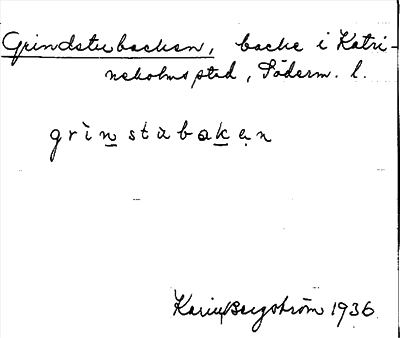 Grindstubacken, backe i Katri-
neholms stad, Söderm. l.
grìnstubaken
Karin Bergström 1936